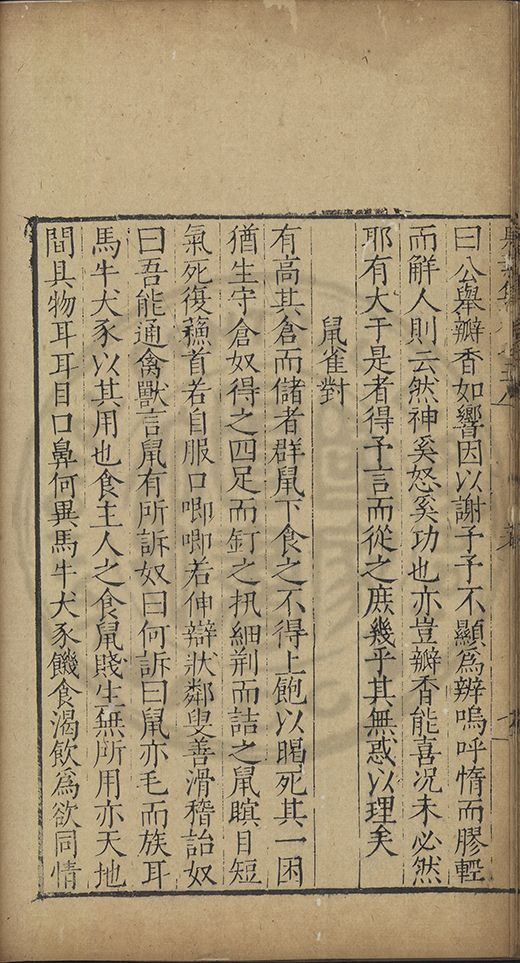 曰公舉瓣香如響因以謝予予不顯為辯嗚呼惰而膠輕
而鮮人則云然神奚怒奚功也亦豈瓣香能喜况未必然
耶有大于是者得予言而從之庶幾乎其無惑以理矣
鼠雀對
有高其倉而儲者群鼠下食之不得上飽以暍死其一困
猶生守倉奴得之四足而釘之扟細荊而詰之鼠瞑目短
氣死復蘓首若自服口唧唧若伸辯狀鄰叟善滑稽詒奴
曰吾能通禽獸言鼠有所訴奴曰何訴曰鼠亦毛而族耳
馬牛犬豕以其用也食主人之食鼠賤生無所用亦天地
間具物耳耳目口鼻何異馬牛犬豕饑食渴飲為欲同情